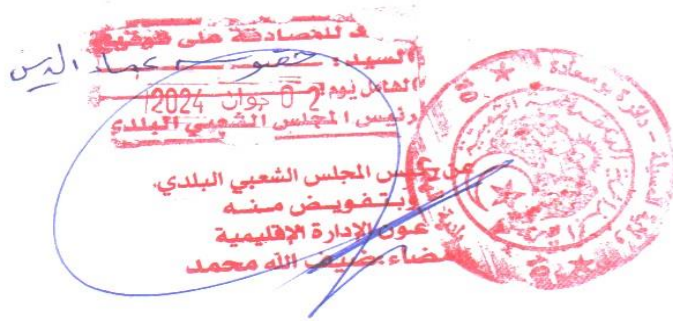 للمصادقة على توقيع
السيد : عماد الدين
الحامل يوم 20 جوان 2024
رئيس المجلس الشعبي البلدي
عن رئيس المجلس الشعبي البلدي.
وبتفويض منه
عون الإدارة الإقليمية
ضيف الله محمد
ولاية المسيلة - دائرة بوسعادة